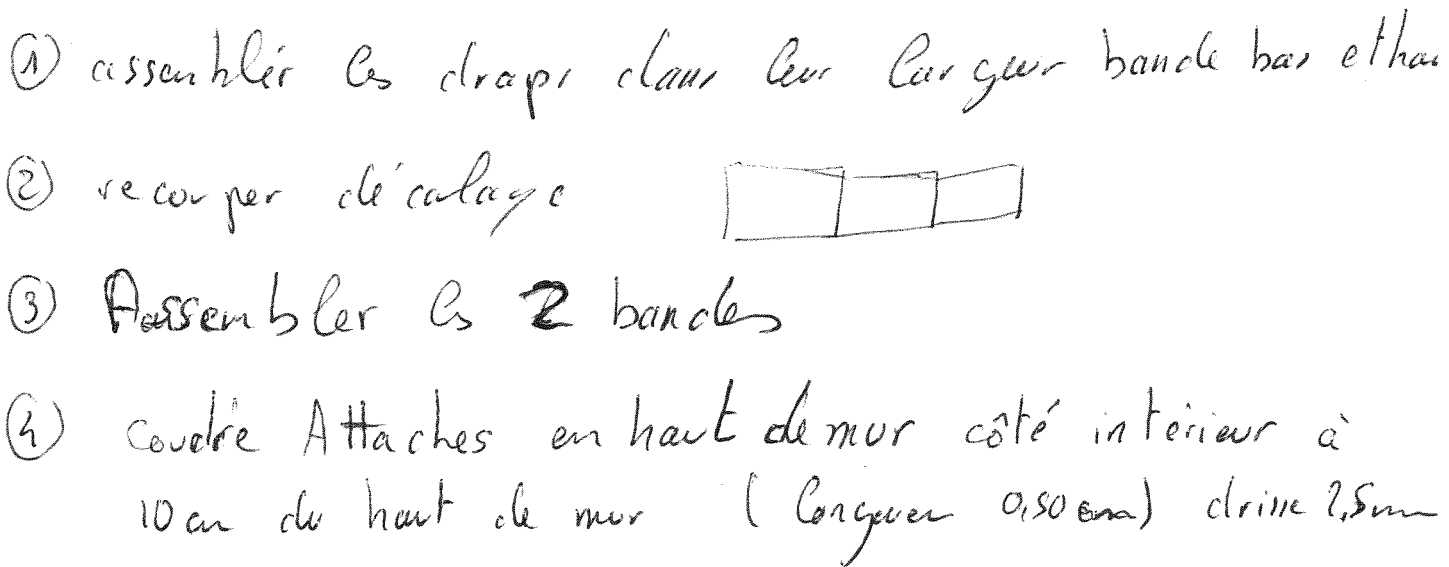 ① assembler les draps dans leur largeur bande bas et hau
② recouper décalage
③ Assembler les 2 bandes
④ coudre Attaches en haut de mur côté intérieur à
10 cm du haut de mur ( longueur 0,50 cm) drisse 2,5mm